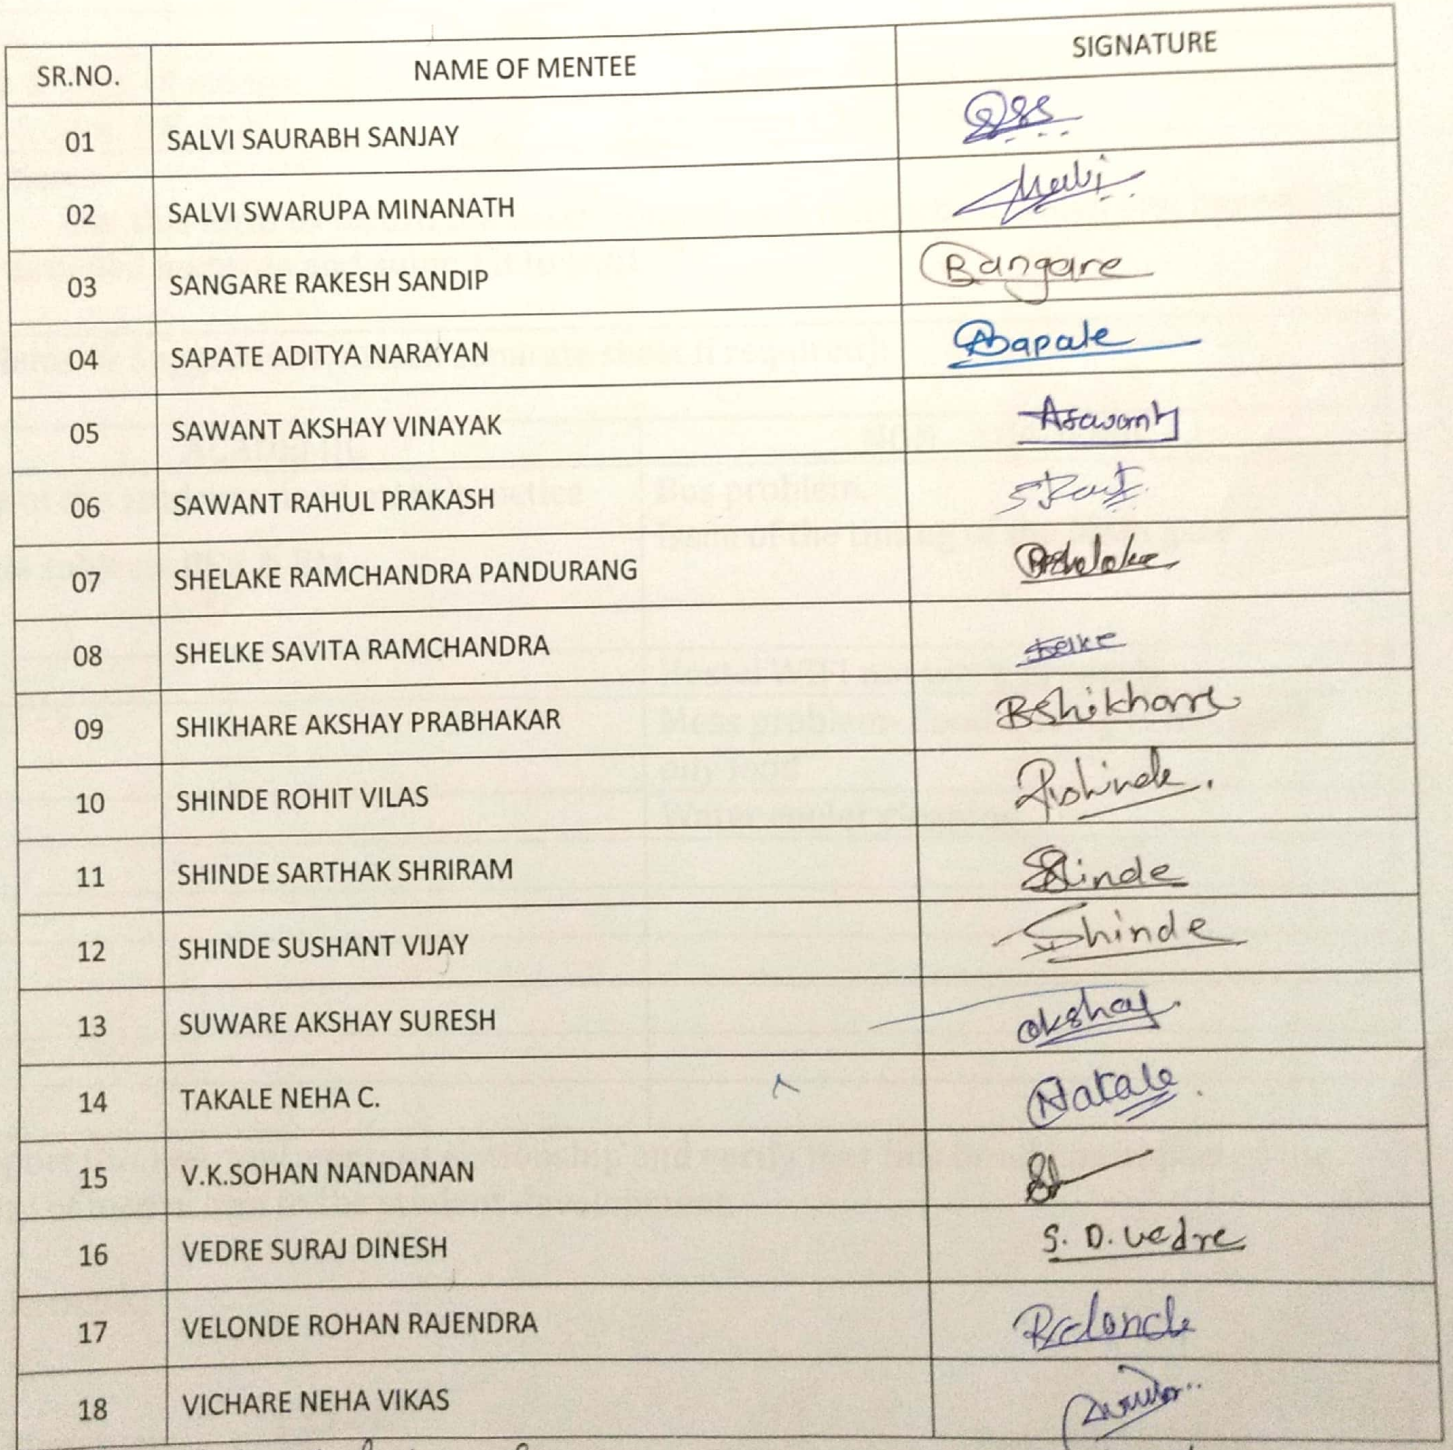 SR.NO. NAME OF MENTEE SIGNATURE
01 SALVI SAURABH SANJAY
02 SALVI SWARUPA MINANATH
03 SANGARE RAKESH SANDIP Bangare
04 SAPATE ADITYA NARAYAN Sapate
05 SAWANT AKSHAY VINAYAK Asawant
06 SAWANT RAHUL PRAKASH
07 SHELAKE RAMCHANDRA PANDURANG Rshelake
08 SHELKE SAVITA RAMCHANDRA Shelke
09 SHIKHARE AKSHAY PRABHAKAR Bshikhare
10 SHINDE ROHIT VILAS Rshinde.
11 SHINDE SARTHAK SHRIRAM Shinde
12 SHINDE SUSHANT VIJAY Shinde
13 SUWARE AKSHAY SURESH akshay.
14 TAKALE NEHA C. Natale
15 V.K.SOHAN NANDANAN
16 VEDRE SURAJ DINESH S. D. vedre
17 VELONDE ROHAN RAJENDRA
18 VICHARE NEHA VIKAS